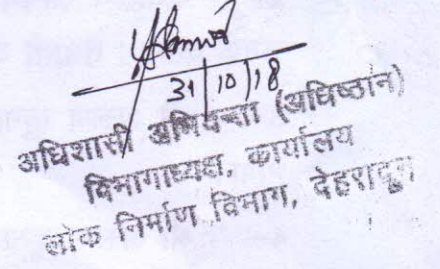 31/10/18
अधिशासी अभियन्ता (अधिष्ठान)
विभागाध्यक्ष, कार्यालय
लोक निर्माण विभाग, देहरादून